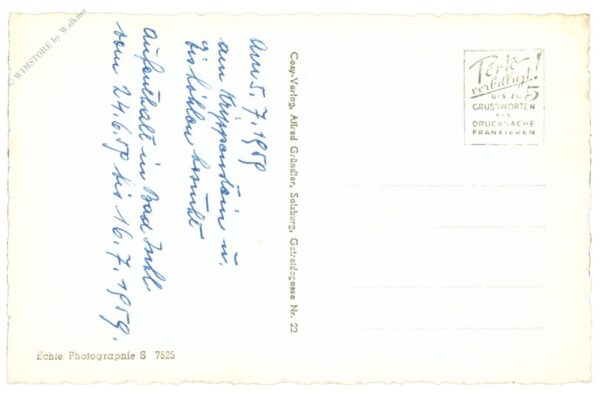 © WIMSTORE by Walkner
Am 5.7.1959
am Krippenstein u.
Eishöhlen besucht
Aufenthalt in Bad Ischl
vom 24.6.59 bis 16.7.1959.
Cosy-Verlag, Alfred Gründler, Salzburg, Getreidegasse Nr. 22
Porto
verbilligt!
BIS ZU 5
GRUSSWORTEN
ALS
DRUCKSACHE
FRANKIEREN
Echte Photographie S 7525